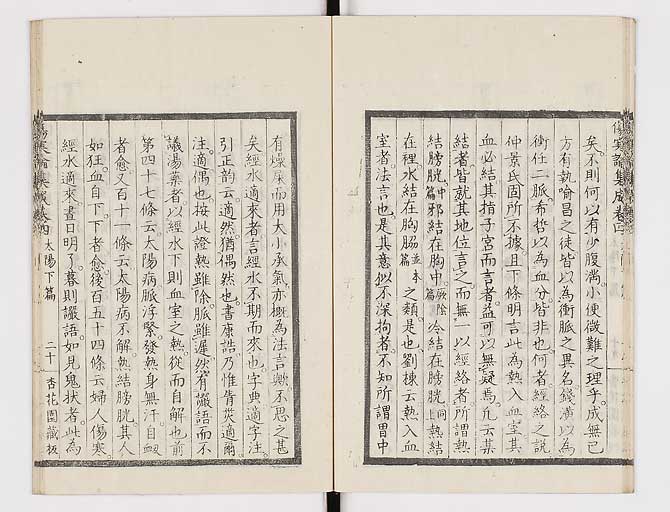 矣不則何以有少腹満小便微難之理乎成無已
方有執喻昌之徒皆以為衝脈之異名錢潢以為
衝任二脈希哲以為血分皆非也何者經絡之說
仲景氏固所不據且下條明言此為熱入血室其
血必結其指子宮而言者益可以無疑焉凡云某
結者皆就其地位言之而無一以經絡者所謂熱
結膀胱中篇邪結在胸中厥陰篇冷結在膀胱同上熱結
在裡水結在胸脇並本篇之類是也劉棟云熱入血
室者法言也是其意似不深拘者不知所謂胃中
有燥屎而用大小承氣亦概為法言歟不思之甚
矣經水適來者言經水不期而來也字典適字注
引正韵云適然猶偶然也書康誥乃惟眚烖適爾
注適偶也按此證熱雖除脈雖遲然有讝語而不
議湯藥者以經水下則血室之熱從而自解也前
第四十七條云太陽病脈浮緊發熱身無汗自衄
者愈又百十一條云太陽病不解熱結膀胱其人
如狂血自下下者愈後百五十四條云婦人傷寒
經水適來晝日明了暮則讝語如見鬼狀者此為
傷寒論集成卷四 太陽下篇 二十 杏花園藏板